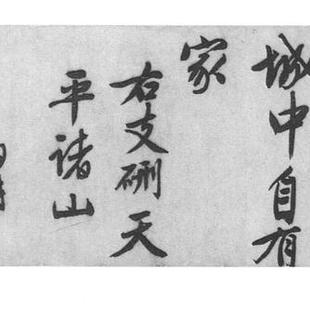 城中自有
家
右支硎天
平诸山